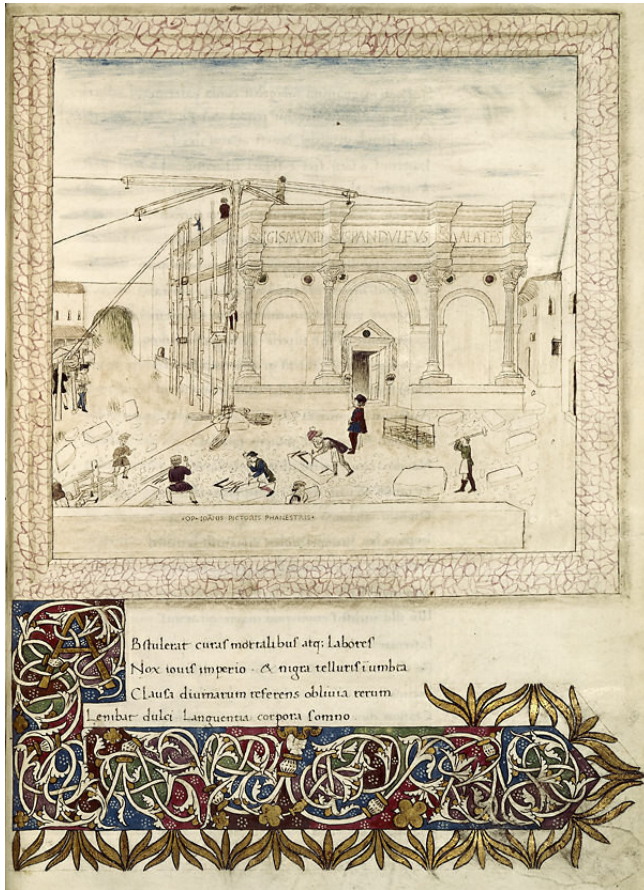 GISMVNDVS PANDVLFVS MALATES
•OP•IOANIS PICTORIS PHANESTRIS•
Bstulerat curas mortalibus atq; labores
Nox iouis imperio · & nigra telluris i umbra
Clausa diurnarum referens obliuia rerum
Lenibat dulci Languentia corpora somno